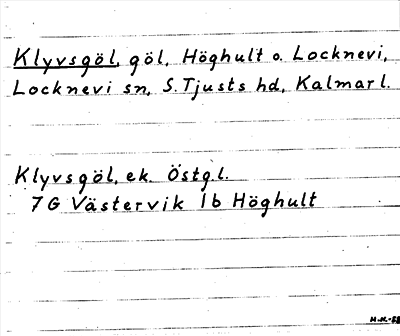 Klyvsgöl, göl, Höghult o. Locknevi,
Locknevi sn, S. Tjusts hd, Kalmar l.
Klyvsgöl, ek. Östg. l.
7 G Västervik 1b Höghult